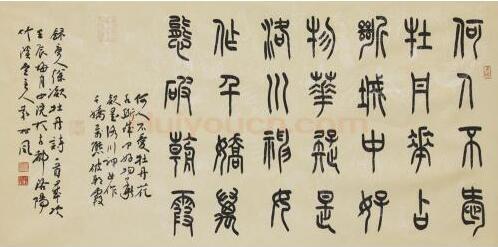 何人不愛
牡丹華占
斷城中好
物華疑是
洛川神女
作千嬌萬
態破朝霞
何人不愛牡丹花
占斷城中好物華
疑是洛川神女作
千嬌萬態破朝霞
錄唐人徐凝牡丹詩一首年次
壬辰梅月中浣於古都洛陽